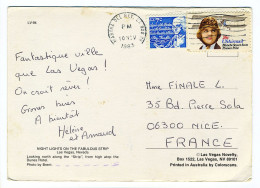 LV-66
PM
10 NOV
1983
Fantastique ville
que Las Vegas!
On croit rêver!
Grosses bises
A bientôt
Hélène
et Arnaud
Mme FINALE L.
35 Bd. Pierre Sola
06300 NICE.
FRANCE
NIGHT LIGHTS ON THE FABULOUS STRIP
Las Vegas, Nevada
Looking north along the "Strip" from high atop the
Dunes Hotel.
Las Vegas Novelty
Box 1522, Las Vegas, NV 89101
Printed in Australia by Colorscans.